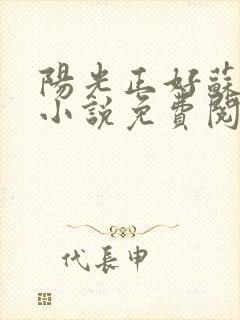 陽光正好蘇
小說免費閱
代長申